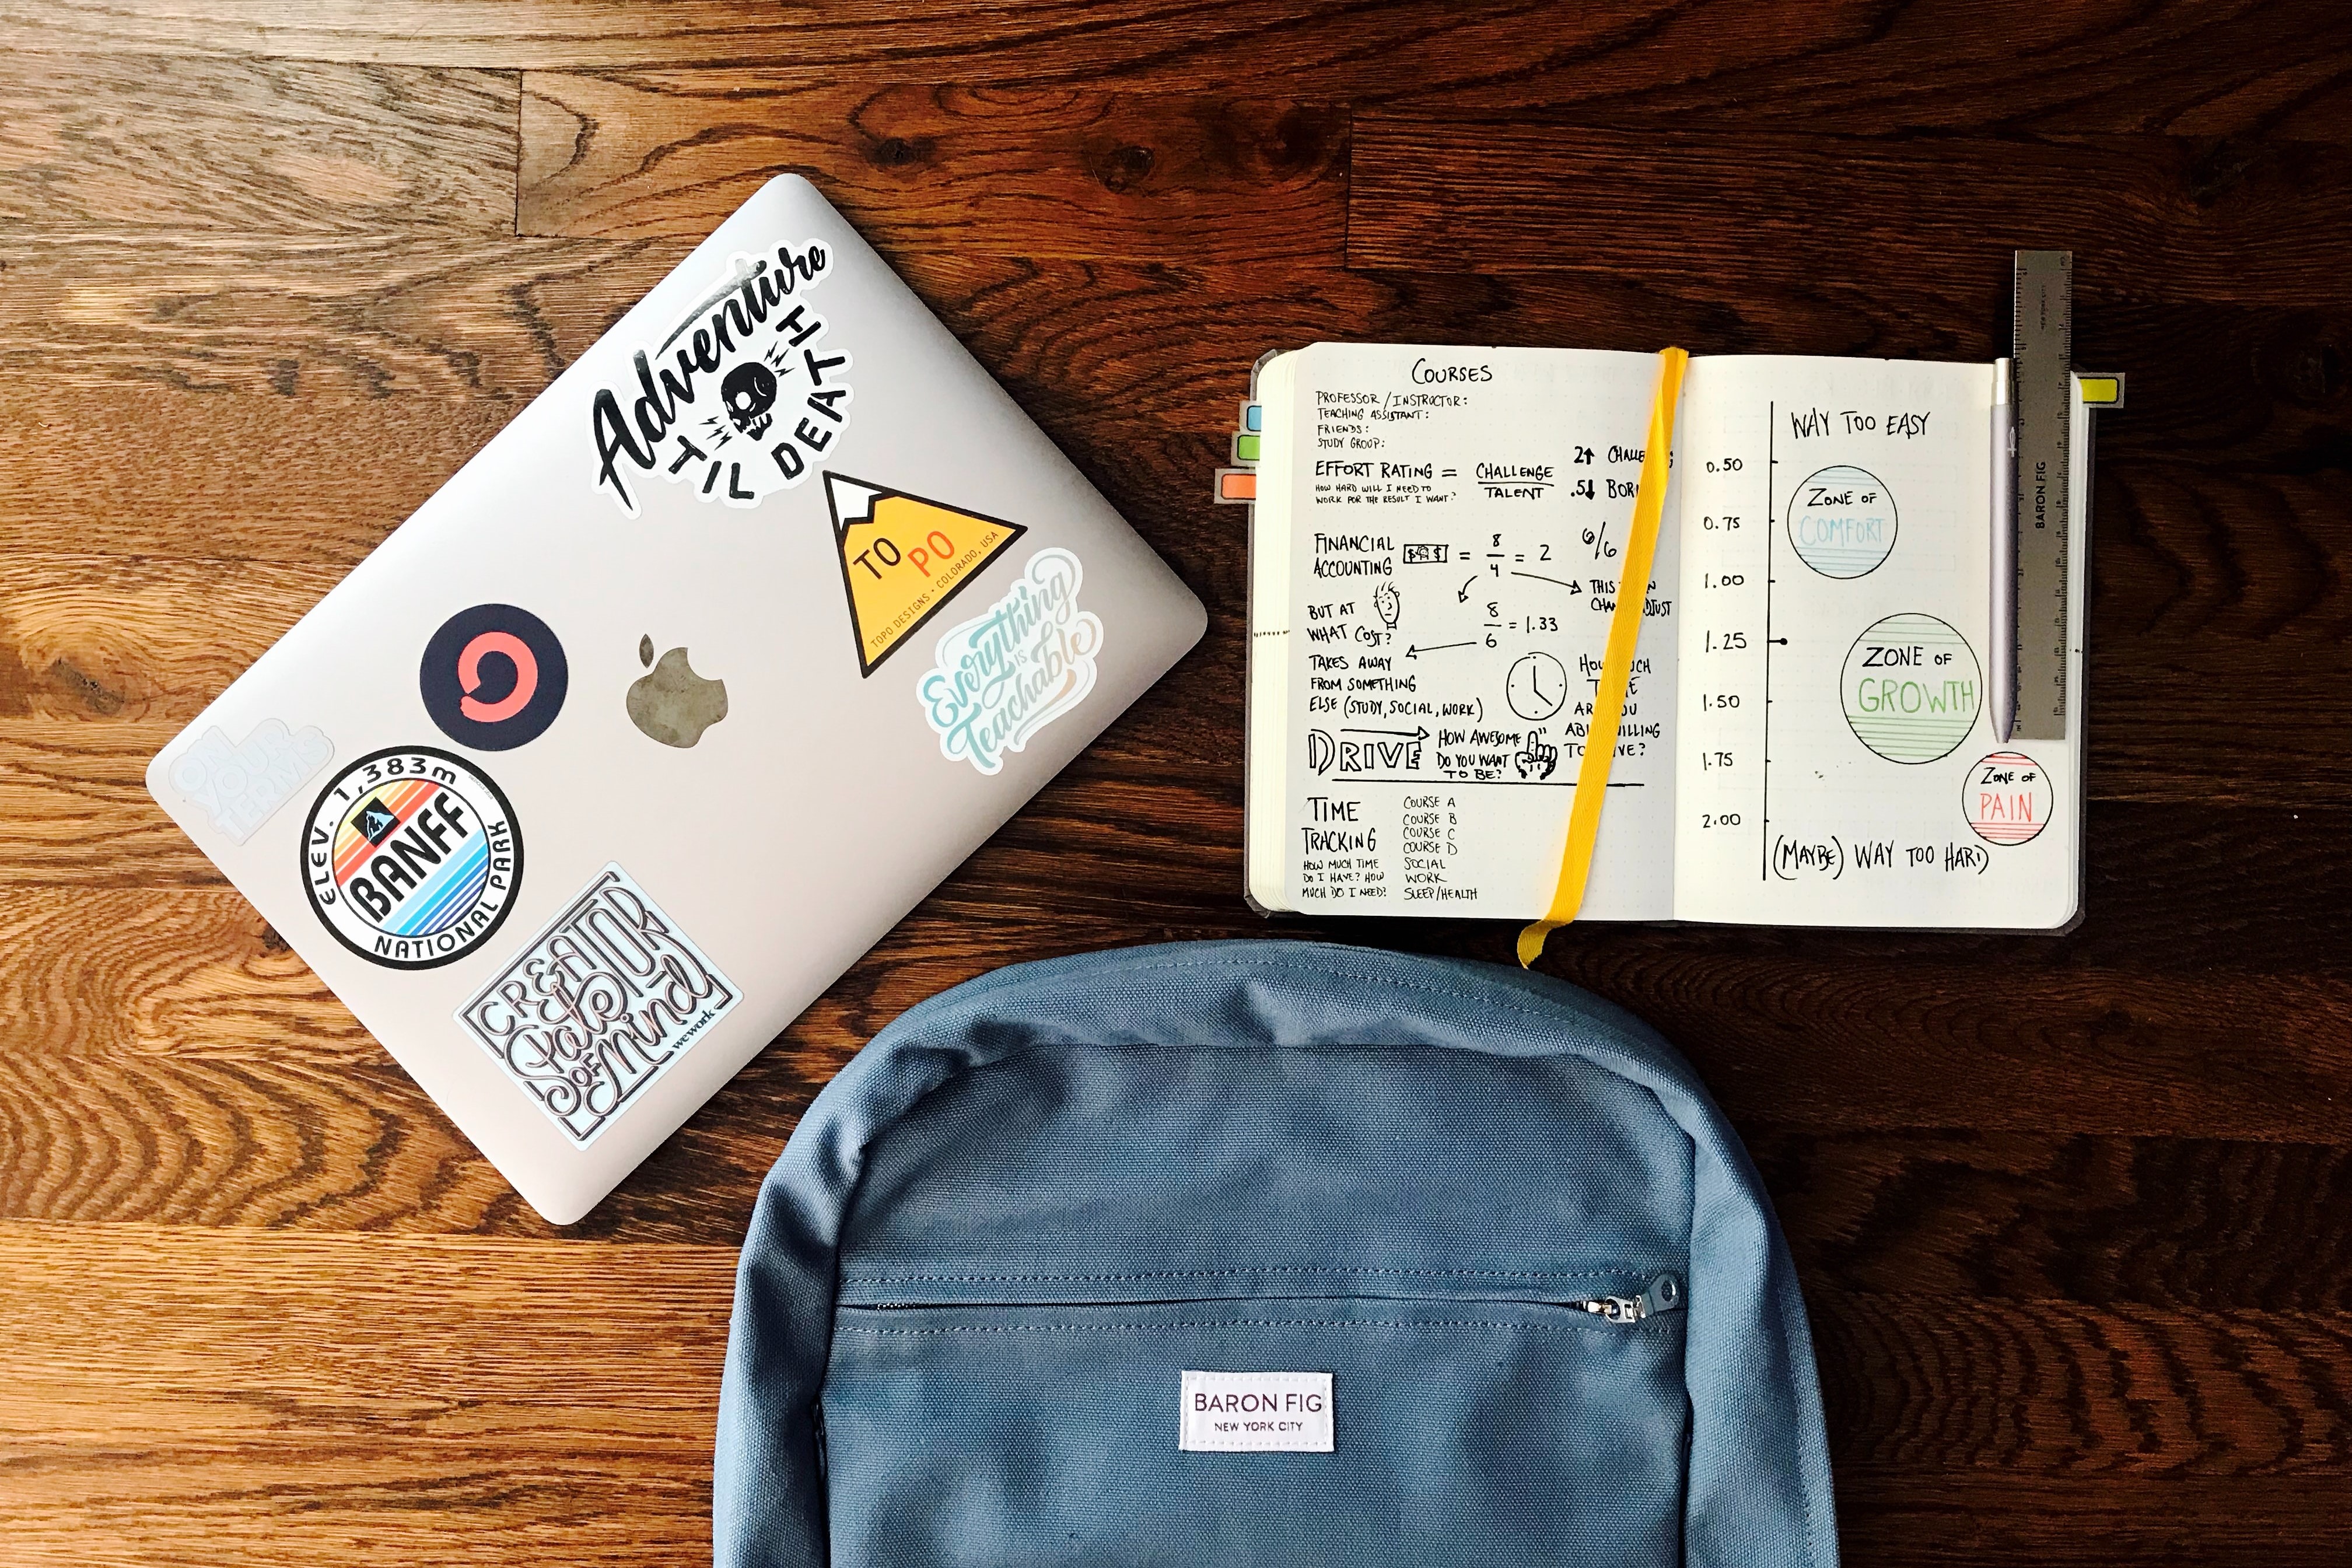 Adventure
TIL DEATH
TO
PO
TOPO DESIGNS • COLORADO, USA
Everything
IS
Teachable
ON
YOUR
TERMS
ELEV. 1,383m
BANFF
NATIONAL PARK
CREATOR
State
OF
Mind
wework
COURSES
PROFESSOR / INSTRUCTOR:
TEACHING ASSISTANT:
FRIENDS:
STUDY GROUP:
EFFORT RATING = CHALLENGE
TALENT
HOW HARD WILL I NEED TO
WORK FOR THE RESULT I WANT?
2↑
.5↓
FINANCIAL
ACCOUNTING
$ $ = 8/4 = 2
6/6
THIS
BUT AT
WHAT COST?
8/6 = 1.33
TAKES AWAY
FROM SOMETHING
ELSE (STUDY, SOCIAL, WORK)
DRIVE
HOW AWESOME
DO YOU WANT
TO BE?
TIME
TRACKING
HOW MUCH TIME
DO I HAVE? HOW
MUCH DO I NEED?
COURSE A
COURSE B
COURSE C
COURSE D
SOCIAL
WORK
SLEEP/HEALTH
WAY TOO EASY
0.50
0.75
1.00
1.25
1.50
1.75
2.00
ZONE OF
COMFORT
ZONE OF
GROWTH
ZONE OF
PAIN
(MAYBE) WAY TOO HARD
BARON FIG
BARON FIG
NEW YORK CITY